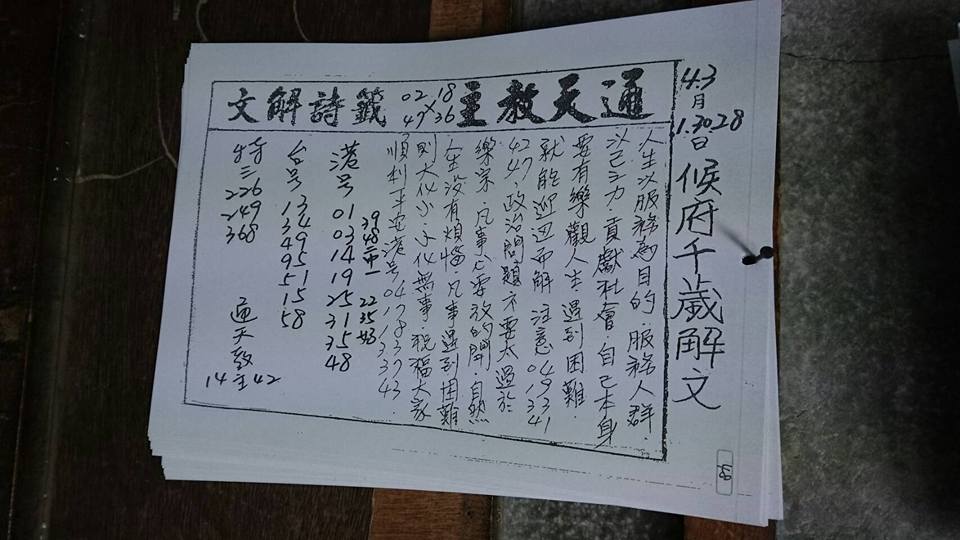 4.3月
1.30.28日
候府千歲解文
通天教主
18 36
02 47
籤詩解文
人生以服務為目的．服務人群．
以己之力貢獻社會．自己本身
要有樂觀人生遇到困難．
就能迎刃而解 注意 04 19 33 41
42 47．政治問題不要太過於
樂深．凡事只要放的開自然
人生沒有煩惱．凡事遇到困難
則大化小．小化無事．祝福大家
順利平安 港号
港号 01 03 14 19 25 31 35 48
39 48 22 35 43
台号
特三 226 249 368
通天教主
14 42